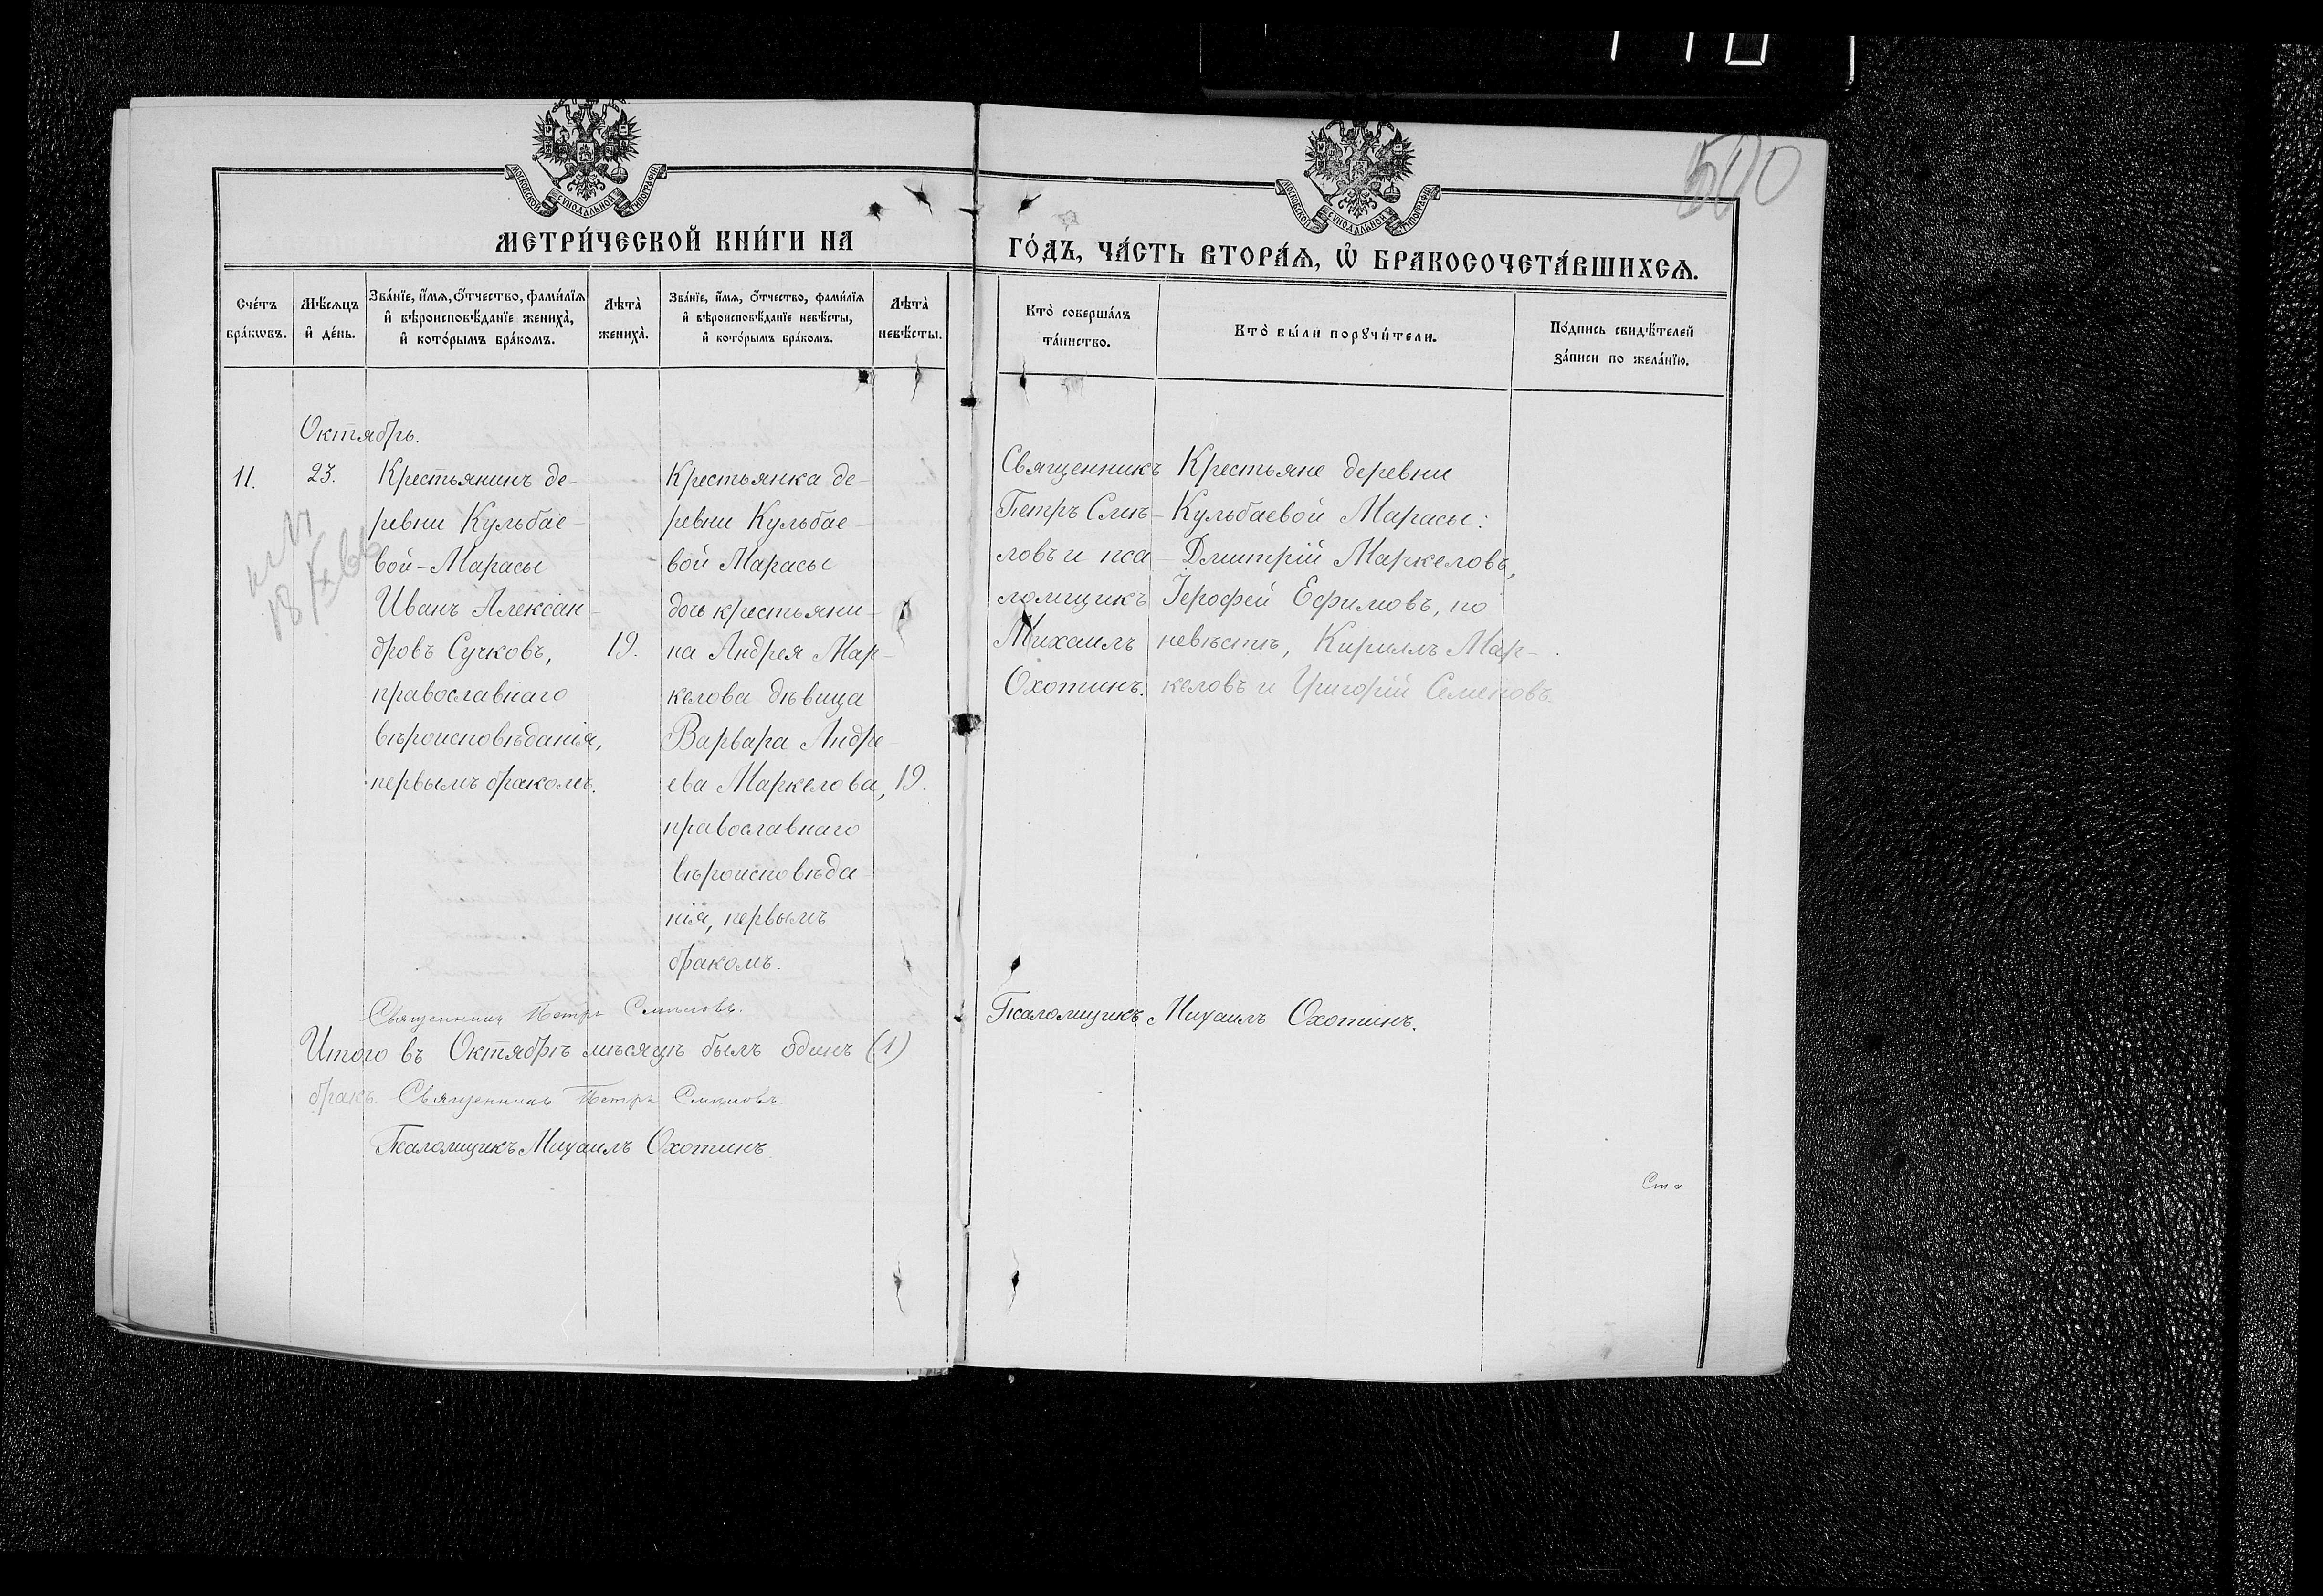 500
МОСКОВСКОЙ СѴНОДАЛЬНОЙ ТИПОГРАФІИ
МОСКОВСКОЙ СѴНОДАЛЬНОЙ ТИПОГРАФІИ
МЕТРИ́ЧЕСКОЙ КНИ́ГИ НА
ГО́ДЪ, ЧА́СТЬ ВТОРА́Ѧ, Ѿ БРАКОСОЧЕТА́ВШИХСѦ.
Сче́тъ
бра́кѡвъ.
Мѣ́сѧцъ
и҆ де́нь.
Зва́нїе, и҆́мѧ, ѻ҆́тчество, фами́лїѧ
и҆ вѣроисповѣ́данїе жениха̀,
и҆ кото́рымъ бра́комъ.
Лѣта̀
жениха̀.
Зва́нїе, и҆́мѧ, ѻ҆́тчество, фами́лїѧ
и҆ вѣроисповѣ́данїе невѣ́сты,
и҆ кото́рымъ бра́комъ.
Лѣта̀
невѣ́сты.
Кто̀ соверша́лъ
та́инство.
Кто̀ бы́ли порꙋчи́тели.
По́дпись свидѣ́телей
за́писи по жела́нїю.
Октябрь.
11.
23.
Крестьянинъ де-
ревни Кульбае-
вой-Марасы
Иванъ Алексан-
дровъ Сучковъ,
православнаго
вѣроисповѣданія,
первымъ бракомъ.
19.
Крестьянка де-
ревни Кульбае-
вой Марасы
дочь крестьяни-
на Андрея Мар-
келова дѣвица
Варвара Андре-
ева Маркелова,
православнаго
вѣроисповѣда-
нія, первымъ
бракомъ.
19.
Священникъ
Петръ Смѣ-
ловъ и пса-
ломщикъ
Михаилъ
Охотинъ.
Крестьяне деревни
Кульбаевой Марасы:
Дмитрій Маркеловъ,
Іерофей Ефимовъ, по
невѣстѣ, Кириллъ Мар-
келовъ и Григорій Семеновъ.
Священникъ Петръ Смѣловъ.
Псаломщикъ Михаилъ Охотинъ.
Итого въ Октябрѣ мѣсяцѣ былъ одинъ (1)
бракъ. Священникъ Петръ Смѣловъ.
Псаломщикъ Михаилъ Охотинъ.
Ста